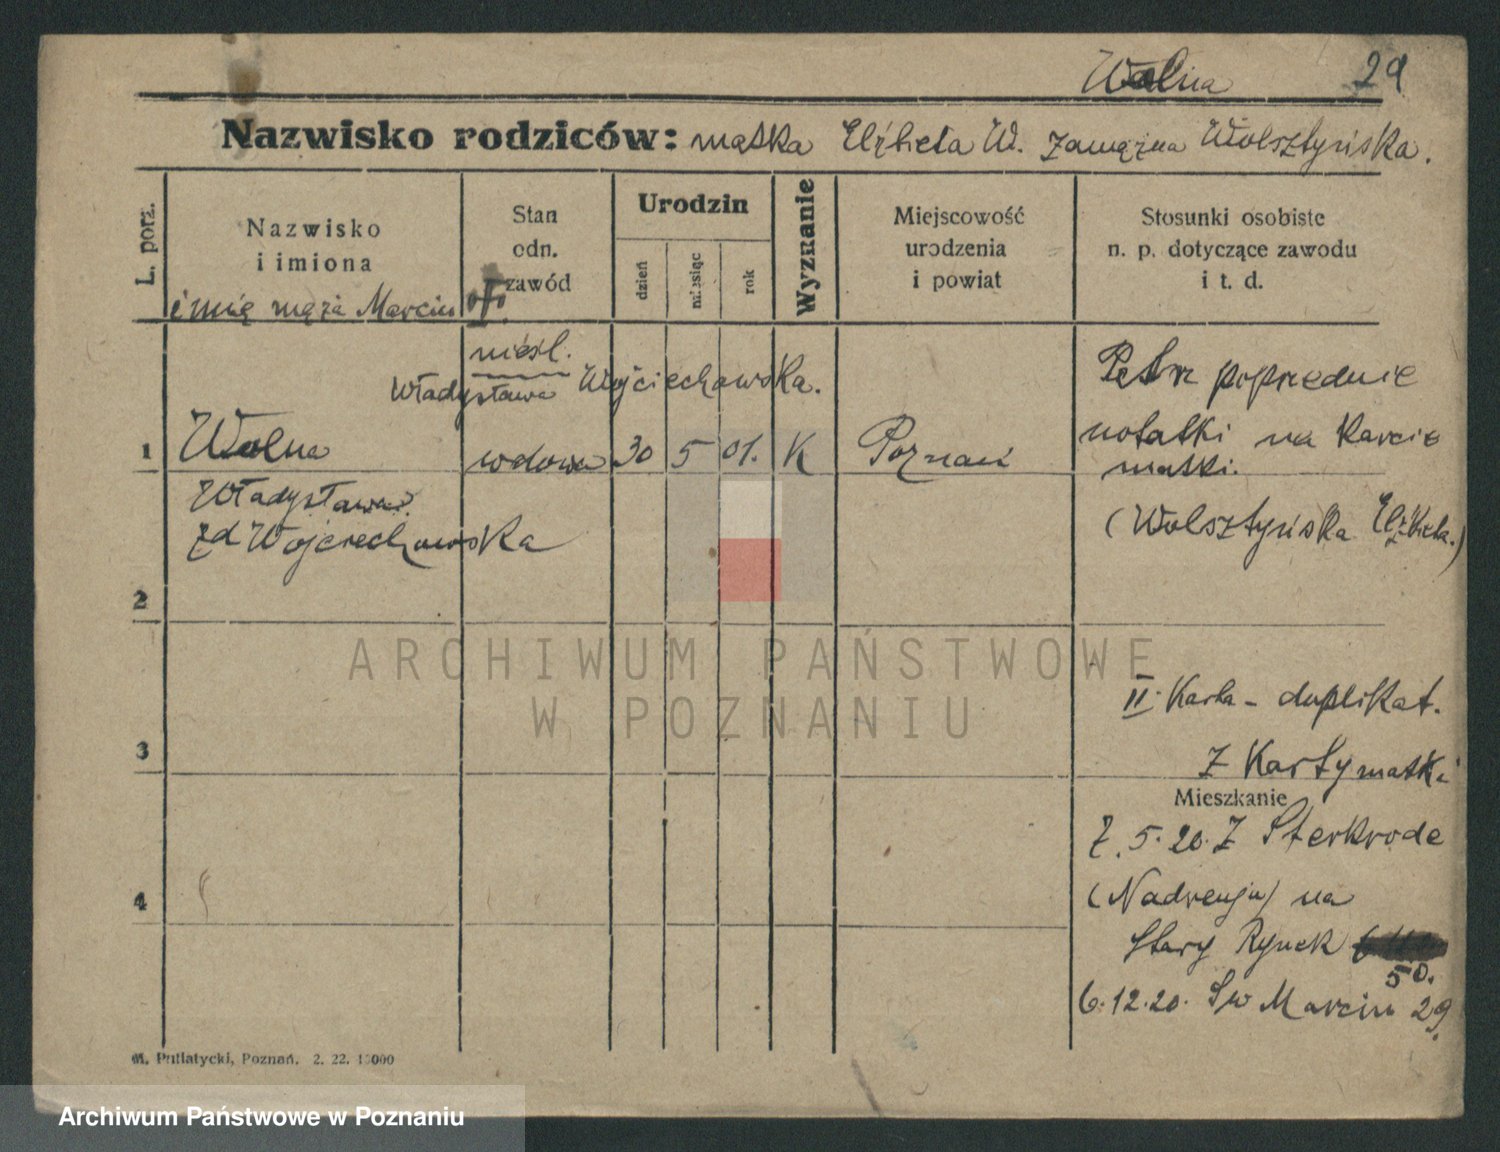 Wolna 29
Nazwisko rodziców: matka Elżbieta W. zamężna Wolsztyńska.
L. porz.
Nazwisko
i imiona
imię męża Marcin
Stan
odn.
zawód
Urodzin
dzień
miesiąc
rok
Wyznanie
Miejscowość
urodzenia
i powiat
Stosunki osobiste
n. p. dotyczące zawodu
i t. d.
nieśl.
Władysława Wojciechowska.
1 Wolna wdowa 30 5 01. K Poznań
Władysława
zd Wojciechowska
Patrz poprzednie
notatki na karcie
matki.
(Wolsztyńska Elżbieta.)
2
II. Karta - duplikat.
3
z Karty matki
Mieszkanie
Z. 5. 20. Z Sterkrode
4
(Nadrenja) na
Stary Rynek
50.
6. 12. 20. Św Marcin 29.
M. Putiatycki, Poznań. 2. 22. 15000
ARCHIWUM PAŃSTWOWE
W POZNANIU
Archiwum Państwowe w Poznaniu